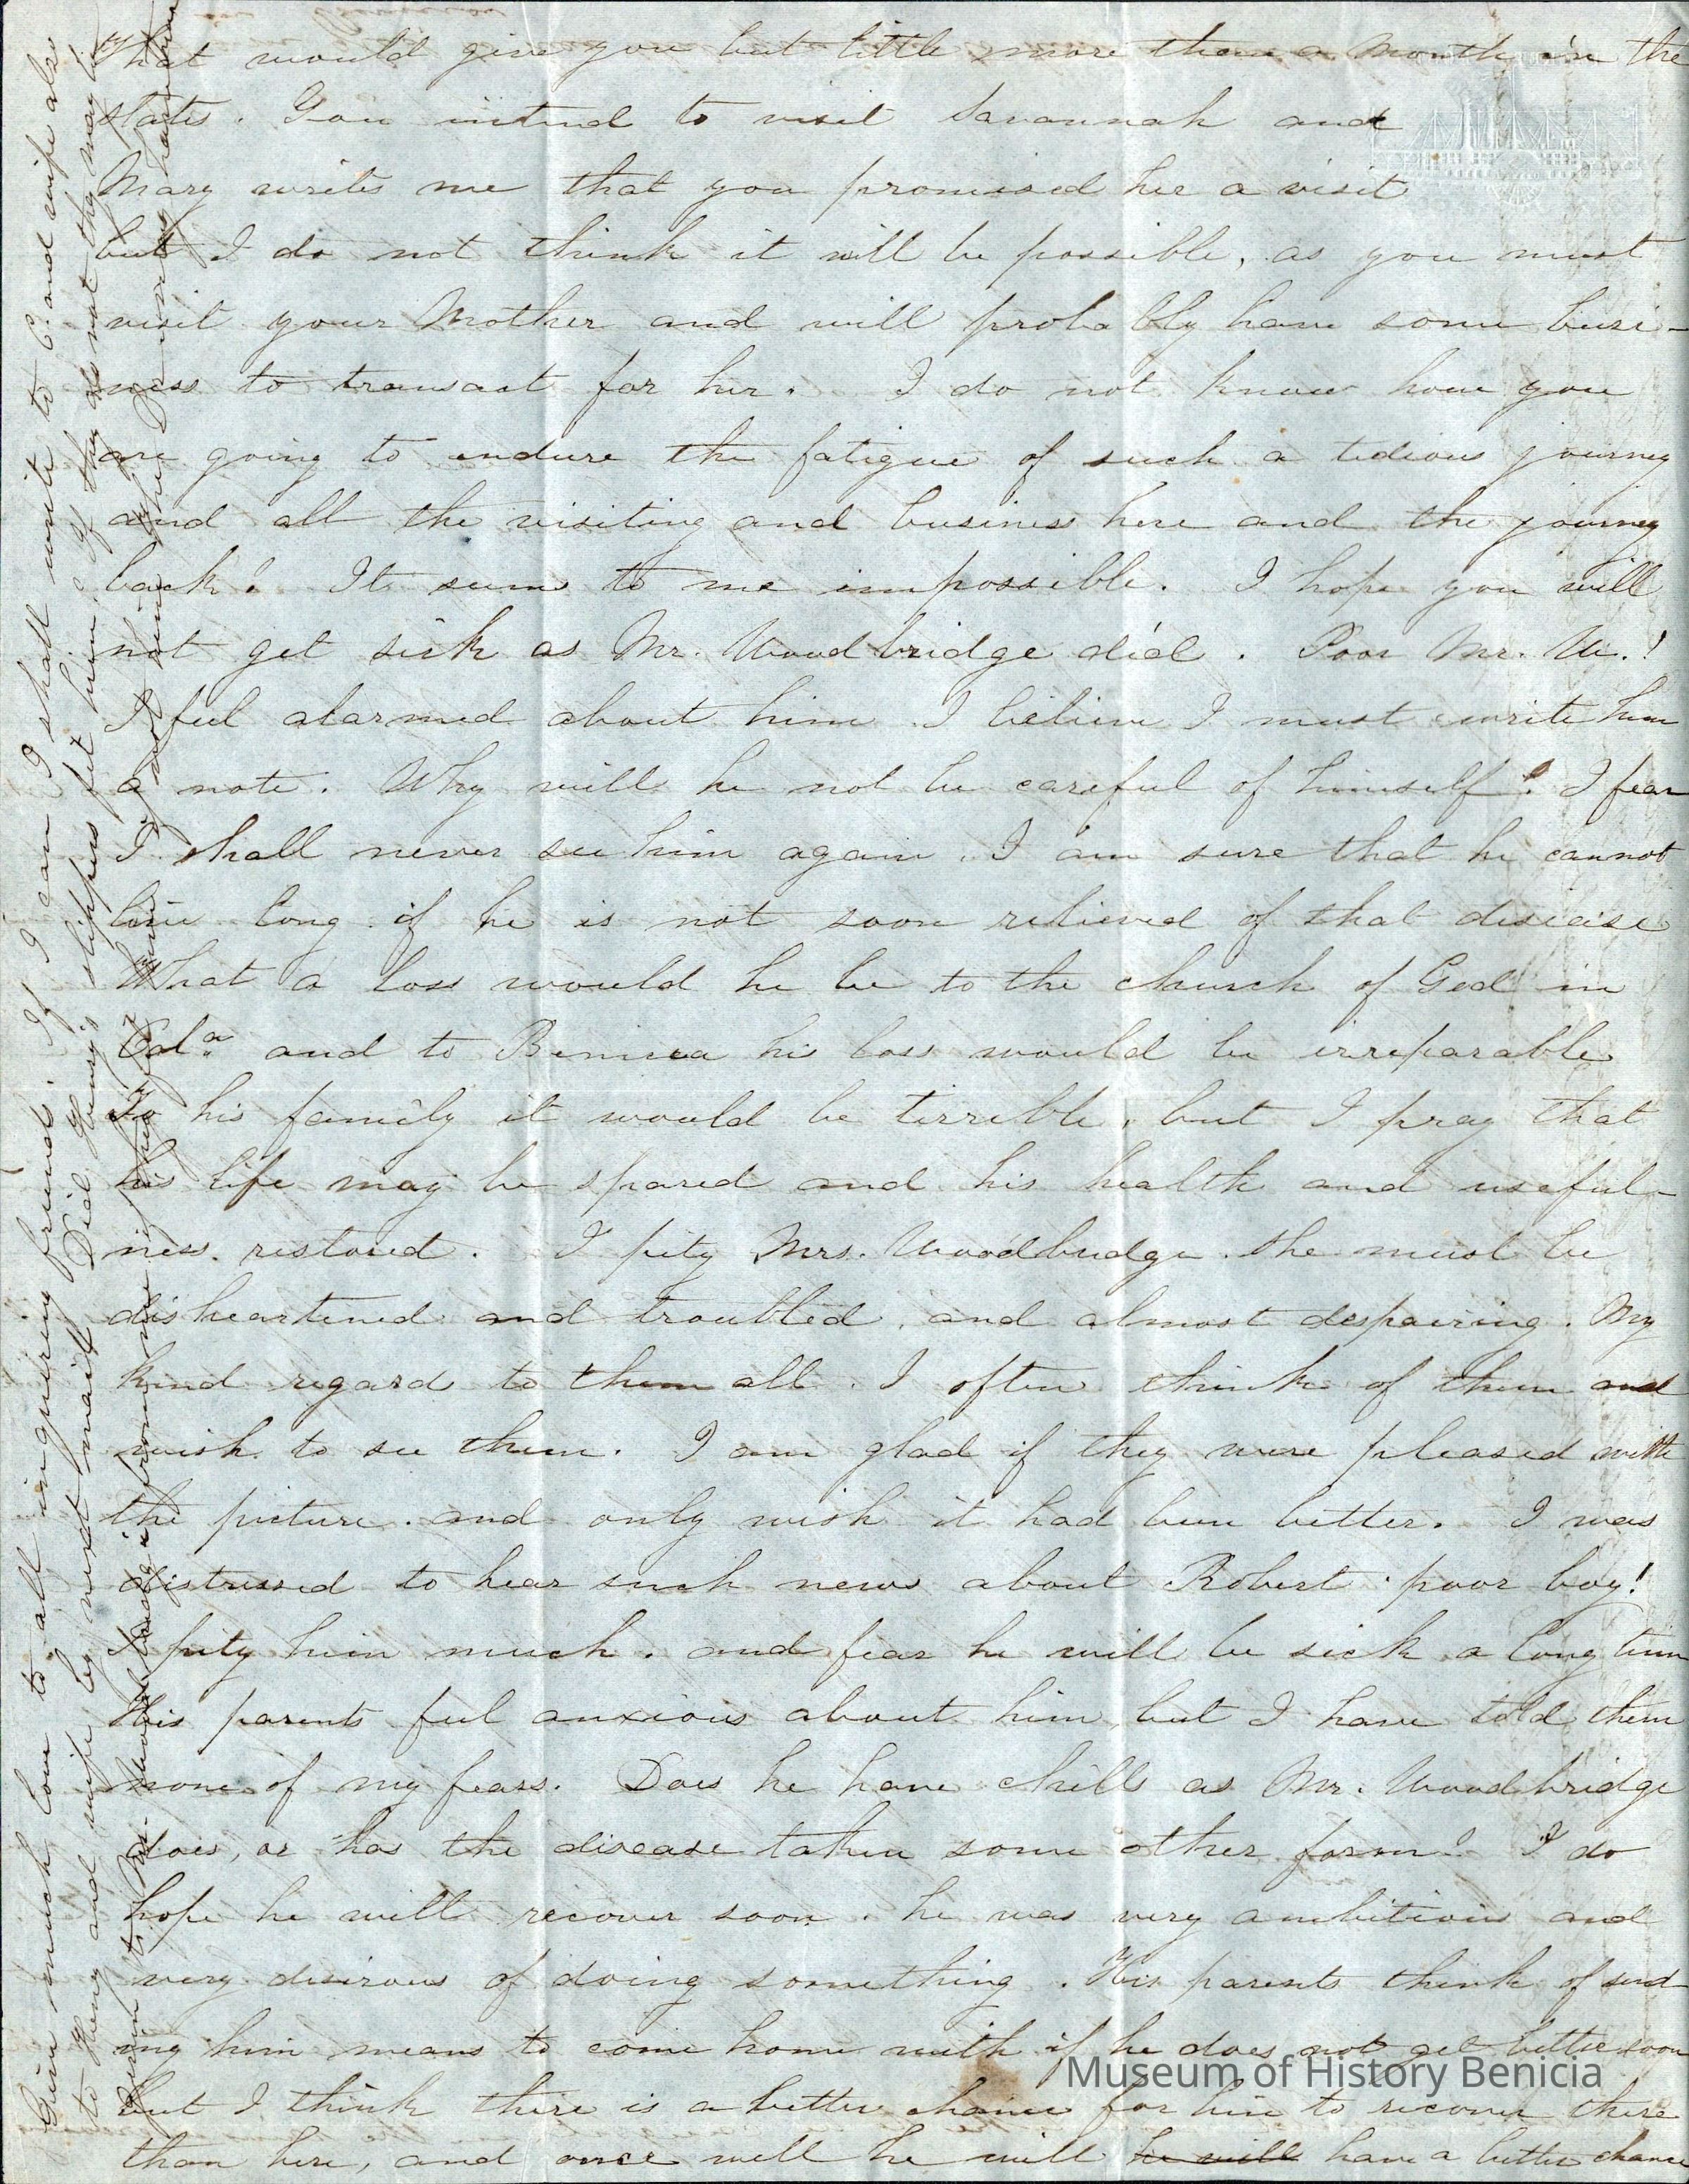 That would give you but little more than a month in the
states. You intend to visit Savannah and
Mary writes me that you promised her a visit
but I do not think it will be possible, as you must
visit your Mother and will probably have some busi-
ness to transact for her. I do not know how you
are going to endure the fatigue of such a tedious journey
and all the visiting and business here and the journey
back! It seems to me impossible. I hope you will
not get sick as Mr. Woodbridge did. Poor Mr. W.!
I feel alarmed about him I believe I must write him
a note. Why will he not be careful of himself? I fear
I shall never see him again. I am sure that he cannot
live long if he is not soon relieved of that disease
What a loss would he be to the church of God in
Cala. and to Benicia his loss would be irreparable
To his family it would be terrible, but I pray that
his life may be spared and his health and useful-
ness restored. I pity Mrs. Woodbridge. she must be
disheartened and troubled and almost despairing. My
kind regards to them all. I often think of them and
wish to see them. I am glad if they were pleased with
the picture. and only wish it had been better. I was
distressed to hear such news about Robert. poor boy!
I pity him much. and fear he will be sick a long time
His parents feel anxious about him, but I have told them
none of my fears. Does he have chills as Mr. Woodbridge
does, or has the disease taken some other form? I do
hope he will recover soon. he was very ambitious and
very desirous of doing something. His parents think of send-
ing him means to come home with if he does not get better soon
but I think there is a better chance for him to recover there
than here, and once well he will he will have a better chance
Give much love to all inquiring friends. If I can I shall write to C. and wife also
to Henry and wife by next mail Did Henry's slippers fit him, if they do not they may
Museum of History Benicia